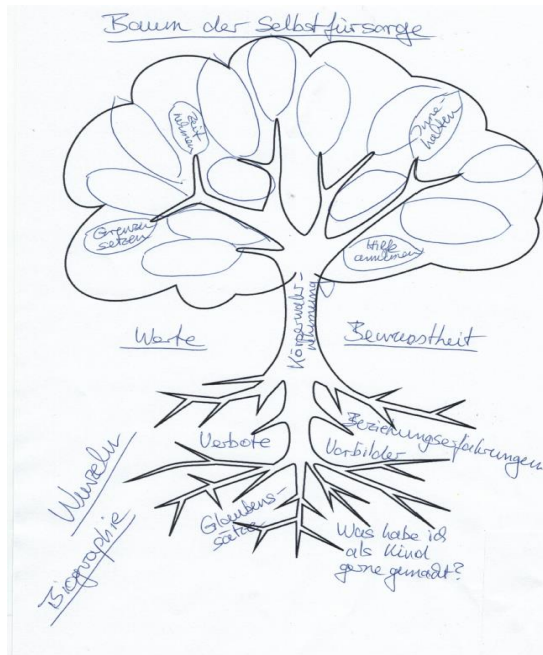 Baum der Selbstfürsorge
Zeit
nehmen
Inne-
halten
Grenzen
setzen
Hilfe
annehmen
Körperwahr-
nehmung
Werte
Bewusstheit
Verbote
Beziehungserfahrungen
Vorbilder
Wurzeln
Biographie
Glaubens-
sätze
Was habe ich
als Kind
gerne gemacht?